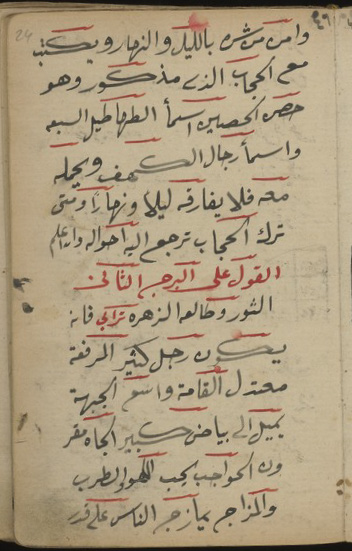 وامن من شره بالليل والنهار ويكتب
مع الحجاب الذي مذكور وهو
حصن الحصين اسما الطهاطيل السبعه
واسما رجال الكهف ويحمله
معه فلا يفارقه ليلا ونهارا ومتى
ترك الحجاب ترجع اليه احواله والله اعلم
القول على البرج الثاني
الثور وطالعه الزهره ترابي فانه
يكون رجل كثير المرفعة
معتدل القامة واسع الجبهة
يميل الى بياض كبير الجاه مقر
ون الحواجب يحب اللهو والطرب
والمزاح يمازح الناس على قدر